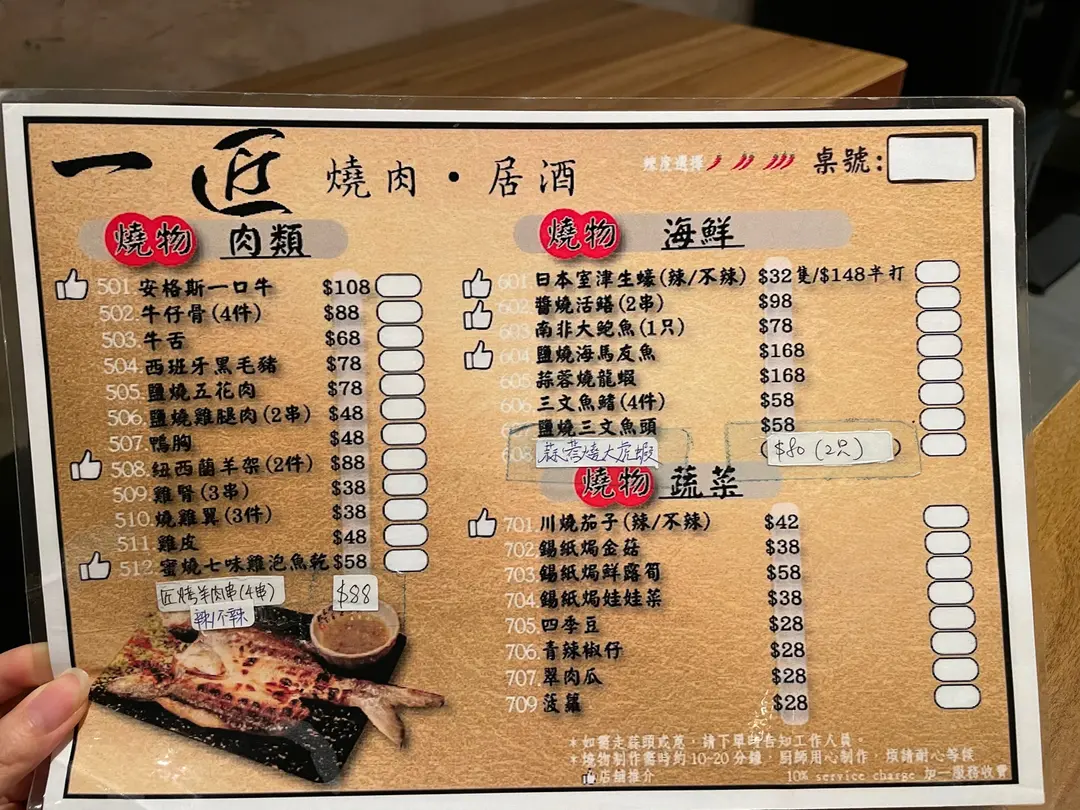 一匠 燒肉・居酒
辣度選擇 桌號:
燒物 肉類
501.安格斯一口牛 $108
502.牛仔骨(4件) $88
503.牛舌 $68
504.西班牙黑毛豬 $78
505.鹽燒五花肉 $78
506.鹽燒雞腿肉(2串) $48
507.鴨胸 $48
508.紐西蘭羊架(2件) $88
509.雞腎(3串) $38
510.燒雞翼(3件) $38
511.雞皮 $48
512.蜜燒七味雞泡魚乾 $58
匠烤羊肉串(4串) $88
辣/不辣
燒物 海鮮
601.日本室津生蠔(辣/不辣) $32隻/$148半打
602.醬燒活鱔(2串) $98
603.南非大鮑魚(1只) $78
604.鹽燒海馬友魚 $168
605.蒜蓉燒龍蝦 $168
606.三文魚鰭(4件) $58
607.鹽燒三文魚頭 $58
608.蒜蓉燒大虎蝦 $80(2只)
燒物 蔬菜
701.川燒茄子(辣/不辣) $42
702.錫紙焗金菇 $38
703.錫紙焗鮮露筍 $58
704.錫紙焗娃娃菜 $38
705.四季豆 $28
706.青辣椒仔 $28
707.翠肉瓜 $28
709 菠蘿 $28
*如需走蒜頭或蔥，請下單時告知工作人員。
*燒物制作需時約10-20分鐘，廚師用心制作，煩請耐心等候
店舖推介 10% service charge 加一服務收費